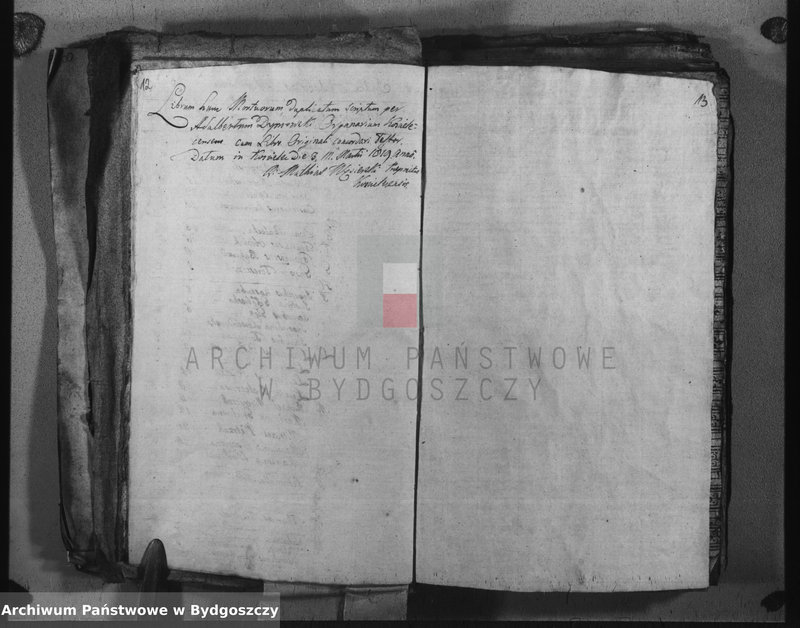 12
Librum hunc Mortuorum duplicatum scriptum per
Adalbertum Organarium
censem cum Libro Originali concordari testor
Datum in D e 3. M. Martii 1819 anno
Mathias Praepositus
13
ARCHIWUM PAŃSTWOWE
W BYDGOSZCZY
Archiwum Państwowe w Bydgoszczy